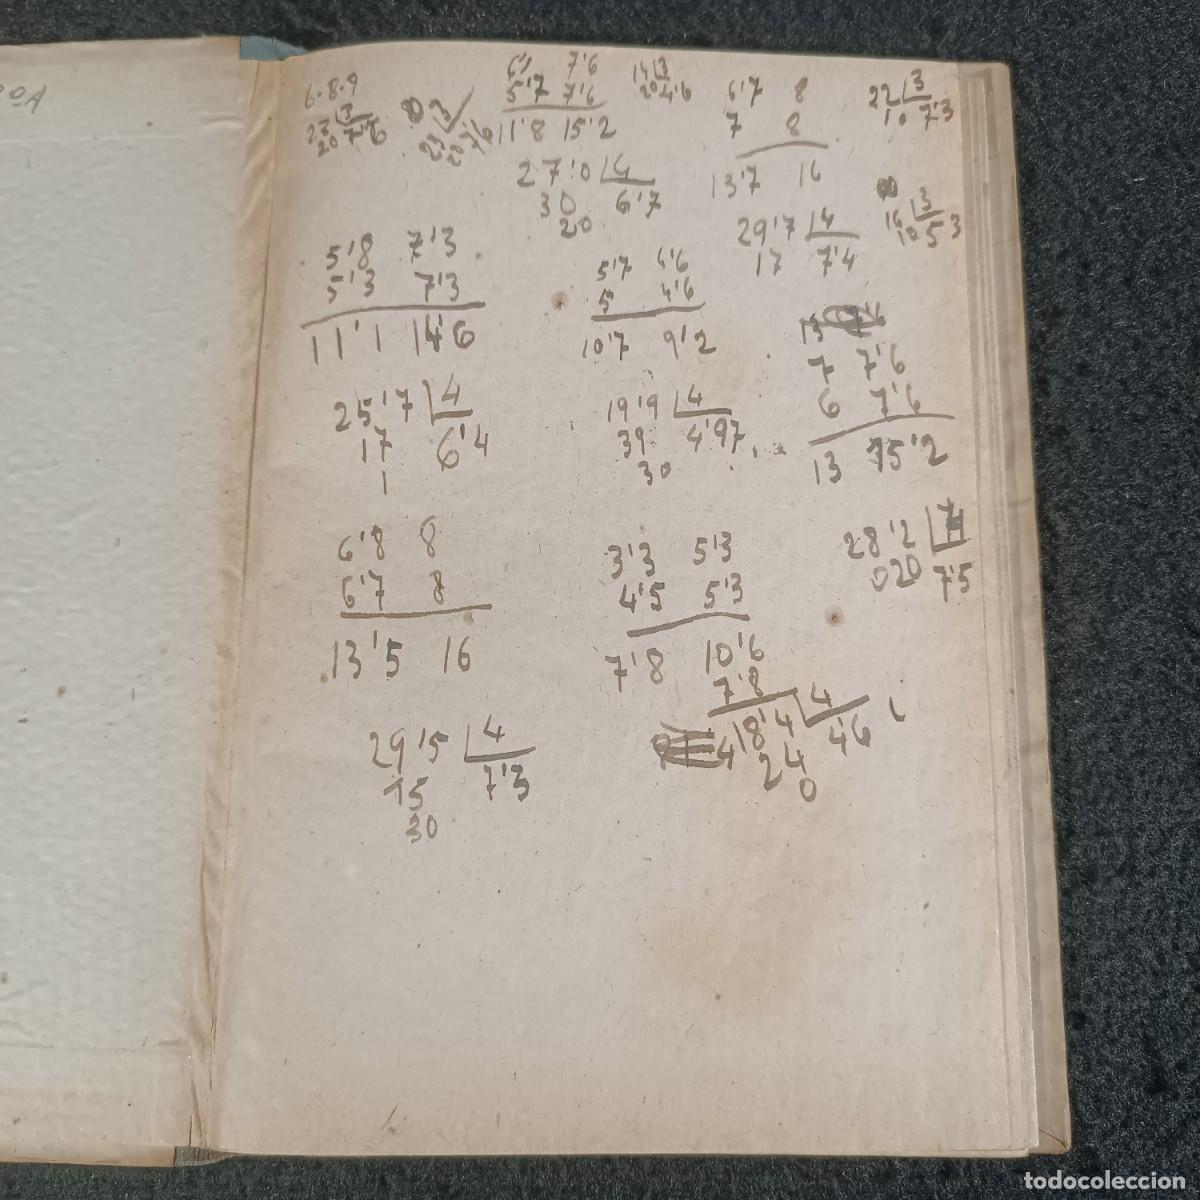 ºA
6.8.9
23 3
20 7'6
3
23
20 7'6
6'1 7'6
5'7 7'6
11'8 15'2
27'0 4
30 6'7
20
14 3
20 4'6
6'7 8
7 8
13'7 16
29'7 4
17 7'4
22 3
10 7'3
16 3
10 5 3
5'8 7'3
5'3 7'3
11'1 14'6
25'7 4
17 6'4
1
5'7 4'6
5 4'6
10'7 9'2
19'9 4
39 4'97
30
13
7 7'6
6 7'6
13 15'2
28'2
020 7'5
6'8 8
6'7 8
13'5 16
29'5 4
15 7'3
30
3'3 5'3
4'5 5'3
7'8 10'6
7'8
18'4 4
24 4'6
0
todocoleccion